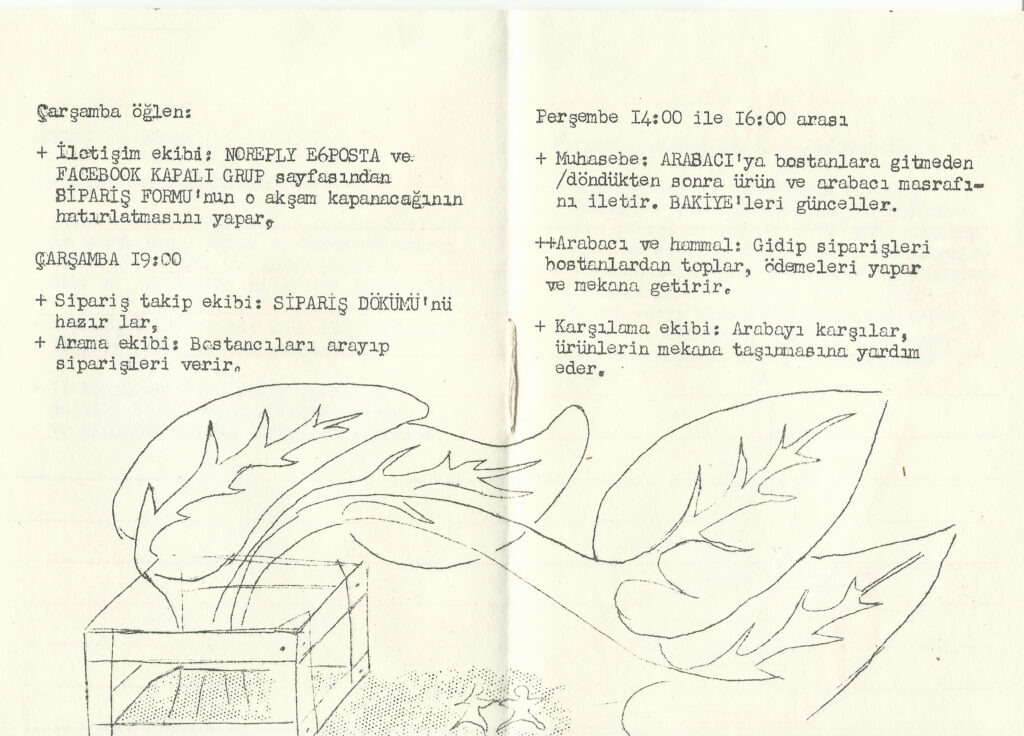 Çarşamba öğlen:
+ İletişim ekibi: NOREPLY E6POSTA ve
FACEBOOK KAPALI GRUP sayfasından
SİPARİŞ FORMU'nun o akşam kapanacağının
hatırlatmasını yapar,
ÇARŞAMBA I9:00
+ Sipariş takip ekibi: SİPARİŞ DÖKÜMÜ'nü
hazır lar,
+ Arama ekibi: Bostancıları arayıp
siparişleri verir.
Perşembe I4:00 ile I6:00 arası
+ Muhasebe: ARABACI'ya bostanlara gitmeden
/döndükten sonra ürün ve arabacı masrafı-
nı iletir. BAKİYE'leri günceller.
++Arabacı ve hammal: Gidip siparişleri
bostanlardan toplar, ödemeleri yapar
ve mekana getirir.
+ Karşılama ekibi: Arabayı karşılar,
ürünlerin mekana taşınmasına yardım
eder.